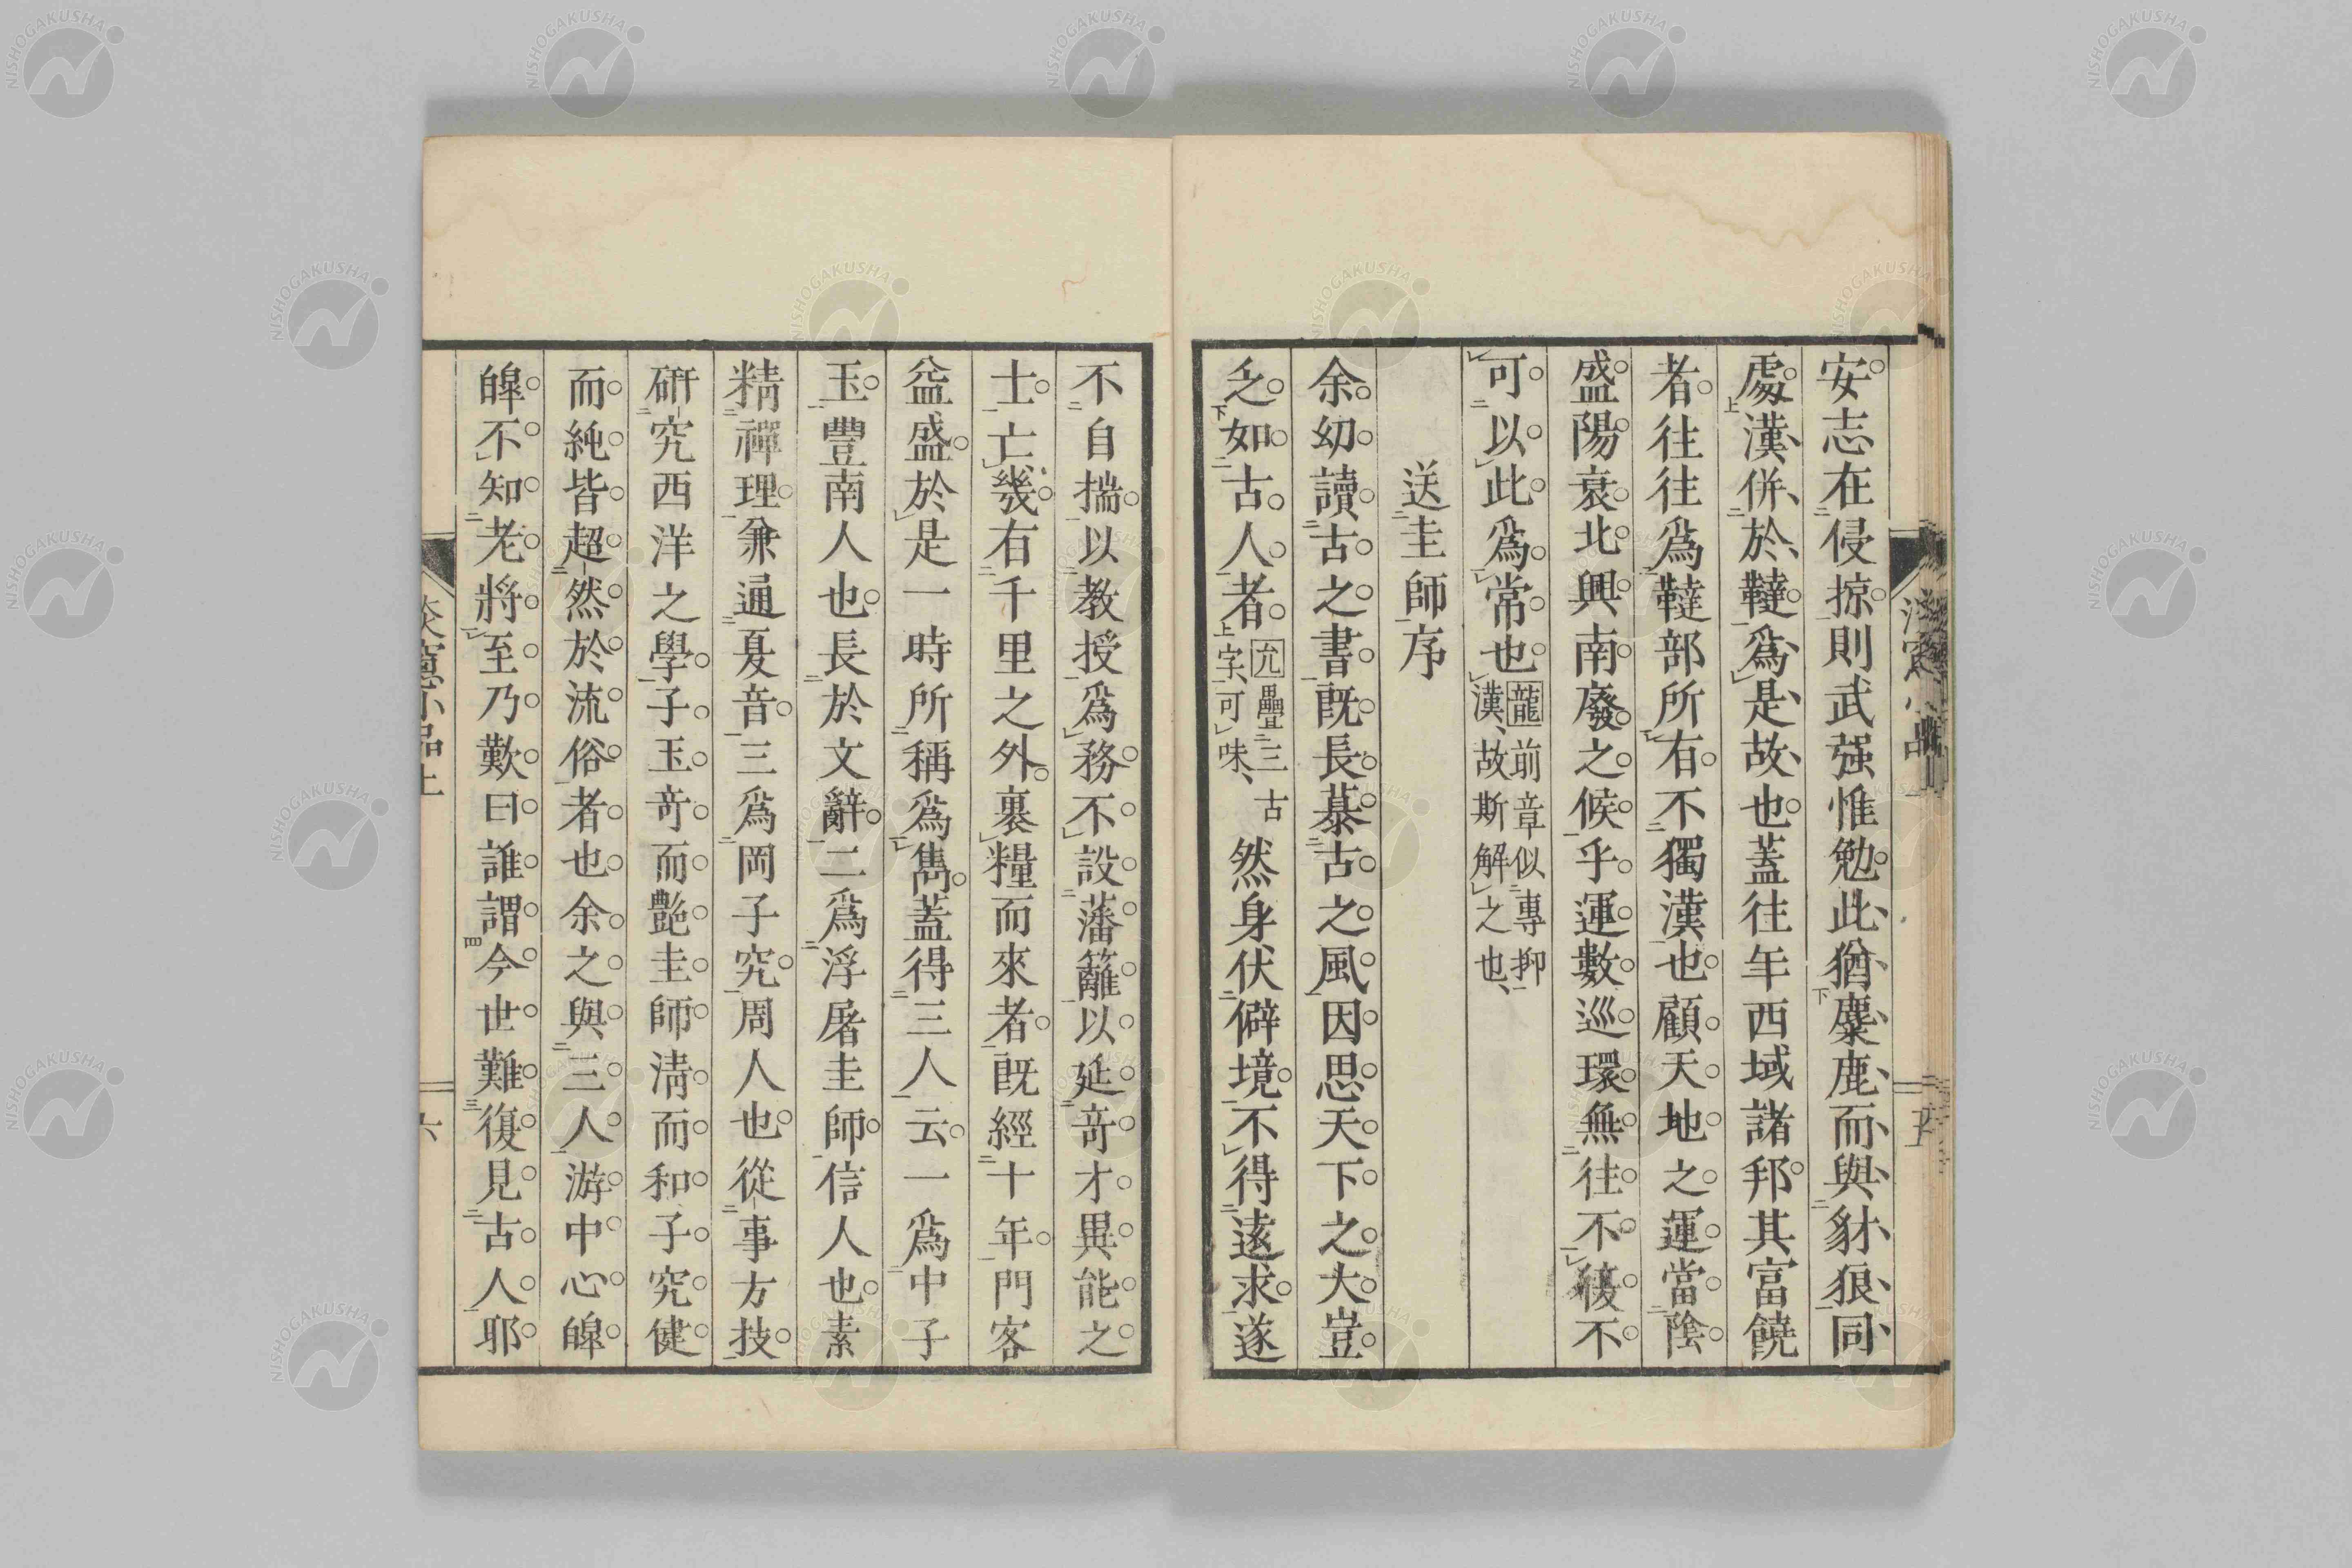 安志在侵掠則武强惟勉此猶麋鹿而與豺狼同
處漢併於韃爲是故也蓋往年西域諸邦其富饒
者往往爲韃部所有不獨漢也顧天地之運當陰
盛陽衰北興南廢之候乎運數巡環無往不復不
可以此爲常也龍前章似專抑
漢故斯解之也
送圭師序
余幼讀古之書既長慕古之風因思天下之大豈
乏如古人者允疊三古
字可味然身伏僻境不得遠求遂
不自揣以教授爲務不設藩籬以延竒才異能之
士亡幾有千里之外裹糧而來者既經十年門客
益盛於是一時所稱爲雋蓋得三人云一爲中子
玉豐南人也長於文辭二爲浮屠圭師信人也素
精禪理兼通夏音三爲岡子究周人也從事方技
研究西洋之學子玉竒而艷圭師清而和子究健
而純皆超然於流俗者也余之與三人游中心皞
皞不知老將至乃歎曰誰謂今世難復見古人耶
窻小品上
六
小品
五
NISHOGAKUSHA